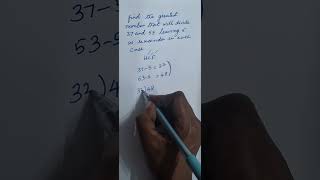 find the greatest
number that will divide
37 and 53 leaving 5
as remainder in each
case
HCF
37-5=32
53-5=48
32)48